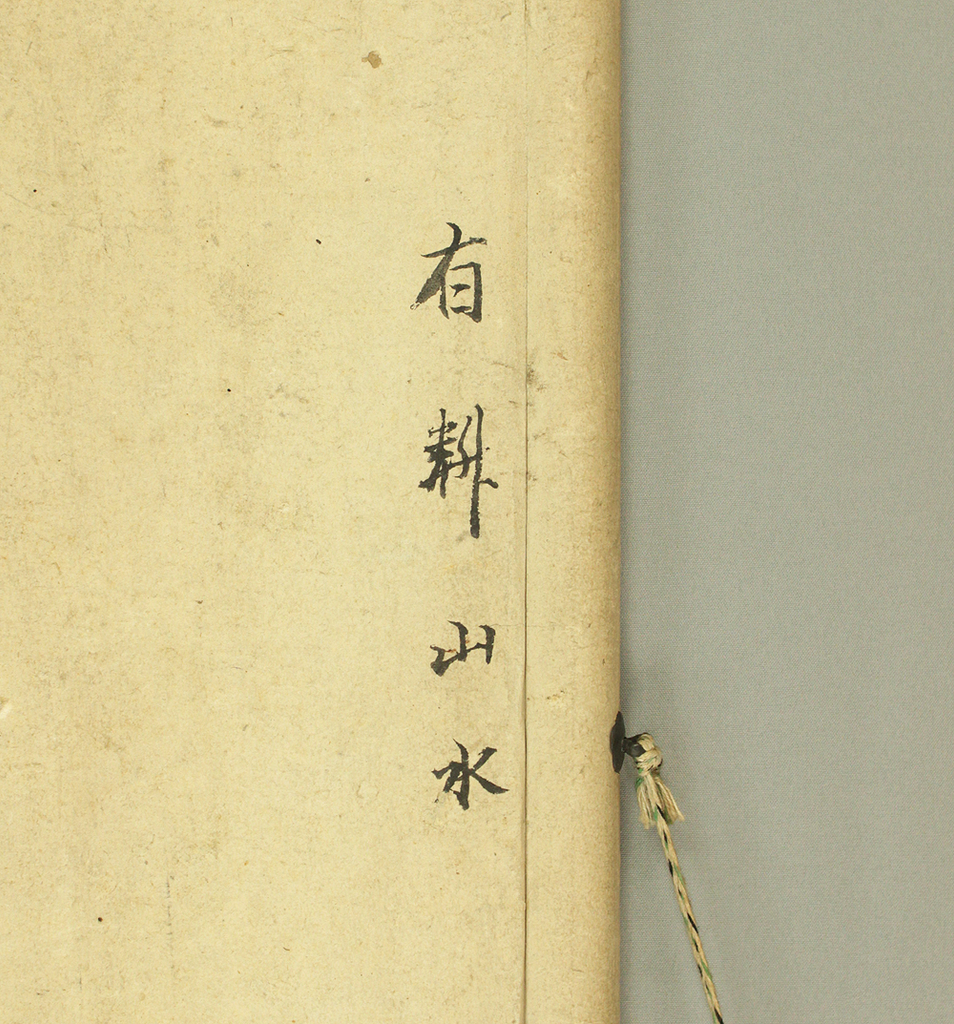 有耕山水